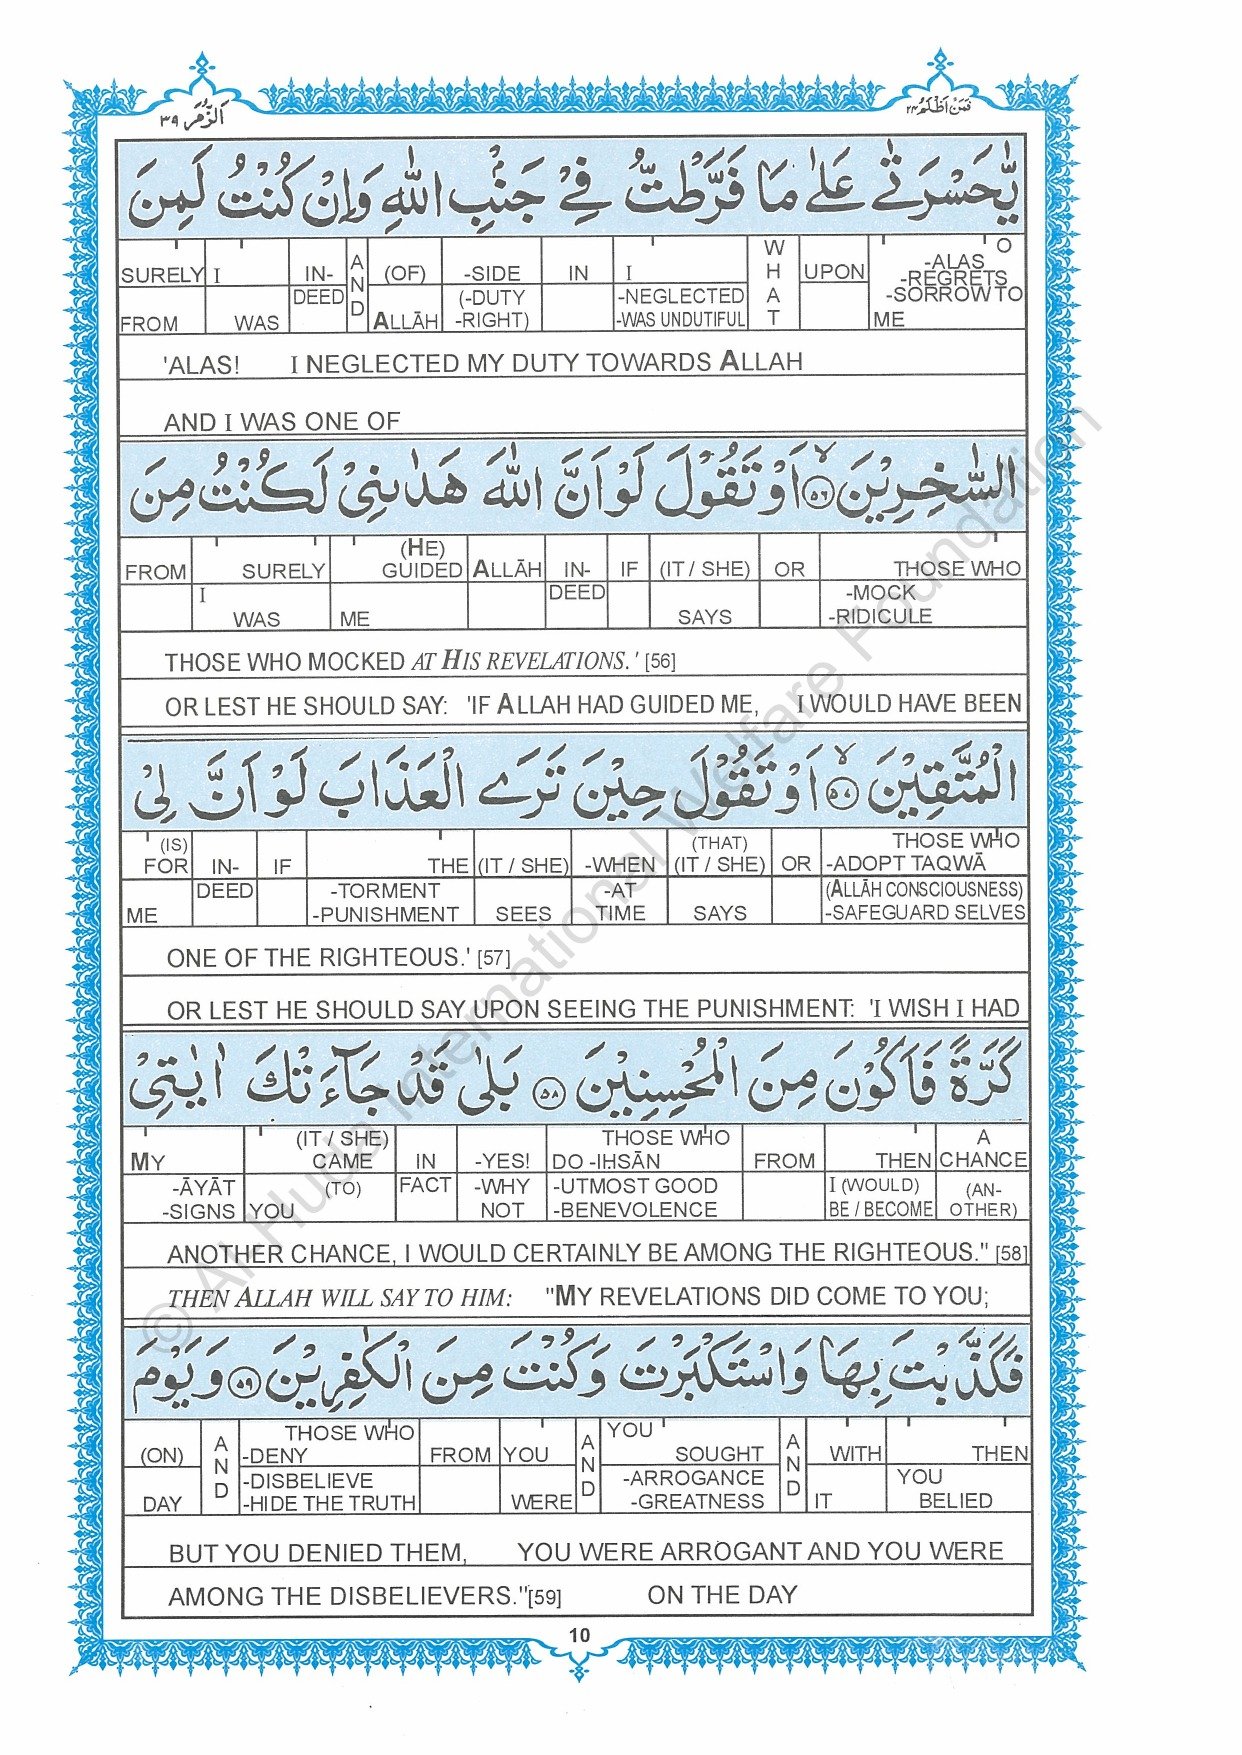 اَلزُّمَر ٣٩
فَمَنْ اَظْلَمُ ٢٤
يّٰحَسْرَتٰى عَلٰى مَا فَرَّطْتُّ فِيْ جَنْۢبِ اللّٰهِ وَاِنْ كُنْتُ لَمِنَ
SURELY I IN- AND (OF) -SIDE IN I WHAT UPON O -ALAS -REGRETS
FROM WAS DEED ALLĀH (-DUTY -RIGHT) -NEGLECTED -WAS UNDUTIFUL -SORROW TO ME
'ALAS! I NEGLECTED MY DUTY TOWARDS ALLAH
AND I WAS ONE OF
السّٰخِرِيْنَ ۙ٥٦ اَوْ تَقُوْلَ لَوْ اَنَّ اللّٰهَ هَدٰىنِيْ لَكُنْتُ مِنَ
FROM SURELY (HE) GUIDED ALLĀH IN- IF (IT / SHE) OR THOSE WHO
I WAS ME DEED SAYS -MOCK -RIDICULE
THOSE WHO MOCKED AT HIS REVELATIONS.' [56]
OR LEST HE SHOULD SAY: 'IF ALLAH HAD GUIDED ME, I WOULD HAVE BEEN
الْمُتَّقِيْنَ ۙ٥٧ اَوْ تَقُوْلَ حِيْنَ تَرَى الْعَذَابَ لَوْ اَنَّ لِيْ
(IS) FOR IN- IF THE (IT / SHE) -WHEN (THAT) (IT / SHE) OR THOSE WHO -ADOPT TAQWĀ
ME DEED -TORMENT -PUNISHMENT SEES -AT TIME SAYS (ALLĀH CONSCIOUSNESS) -SAFEGUARD SELVES
ONE OF THE RIGHTEOUS.' [57]
OR LEST HE SHOULD SAY UPON SEEING THE PUNISHMENT: 'I WISH I HAD
كَرَّةً فَاَكُوْنَ مِنَ الْمُحْسِنِيْنَ ٥٨ بَلٰى قَدْ جَآءَتْكَ اٰيٰتِيْ
MY (IT / SHE) CAME IN -YES! THOSE WHO DO -IHSĀN FROM THEN A CHANCE
-ĀYĀT -SIGNS (TO) YOU FACT -WHY NOT -UTMOST GOOD -BENEVOLENCE I (WOULD) BE / BECOME (AN- OTHER)
ANOTHER CHANCE, I WOULD CERTAINLY BE AMONG THE RIGHTEOUS." [58]
THEN ALLAH WILL SAY TO HIM: "MY REVELATIONS DID COME TO YOU;
فَكَذَّبْتَ بِهَا وَاسْتَكْبَرْتَ وَكُنْتَ مِنَ الْكٰفِرِيْنَ ٥٩ وَيَوْمَ
(ON) AND THOSE WHO -DENY FROM YOU AND YOU SOUGHT AND WITH THEN
DAY -DISBELIEVE -HIDE THE TRUTH WERE -ARROGANCE -GREATNESS IT YOU BELIED
BUT YOU DENIED THEM, YOU WERE ARROGANT AND YOU WERE
AMONG THE DISBELIEVERS."[59] ON THE DAY
10
© Al Huda International Welfare Foundation